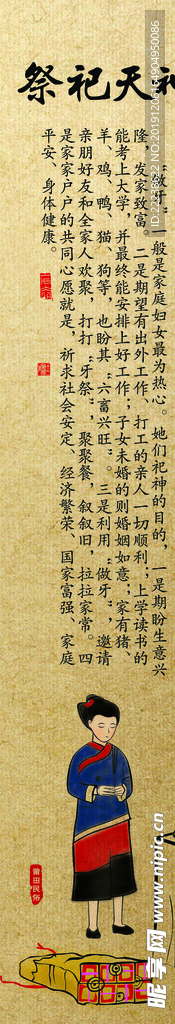 祭祀天
牙”，一般是家庭妇女最为热心。她们祀神的目的，一是期盼生意兴
隆，发家致富。二是期望有出外工作、打工的亲人一切顺利；上学读书的
能考上大学，并最终能安排上好工作；子女未婚的则婚姻如意；家有猪、
羊、鸡、鸭、猫、狗等，也盼其“六畜兴旺”。三是利用“做牙”，邀请
亲朋好友和全家人欢聚，打打“牙祭”，聚聚餐，叙叙旧，拉拉家常。四
是家家户户的共同心愿就是，祈求社会安定、经济繁荣、国家富强、家庭
平安、身体健康。
莆田民俗
昵享网 www.nipic.cn